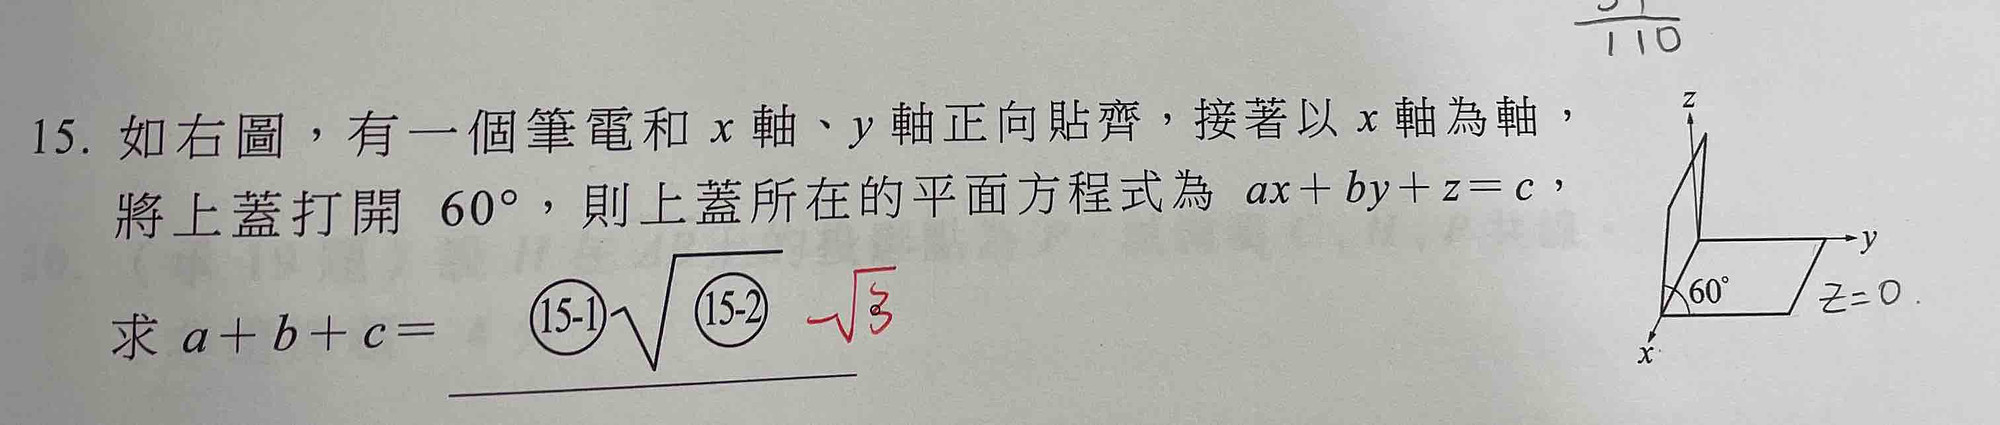 110
15. 如右圖，有一個筆電和 x 軸、y 軸正向貼齊，接著以 x 軸為軸，
將上蓋打開 60°，則上蓋所在的平面方程式為 ax+by+z=c，
求 a+b+c= (15-1)√(15-2) -√3
z
y
60°
z=0.
x